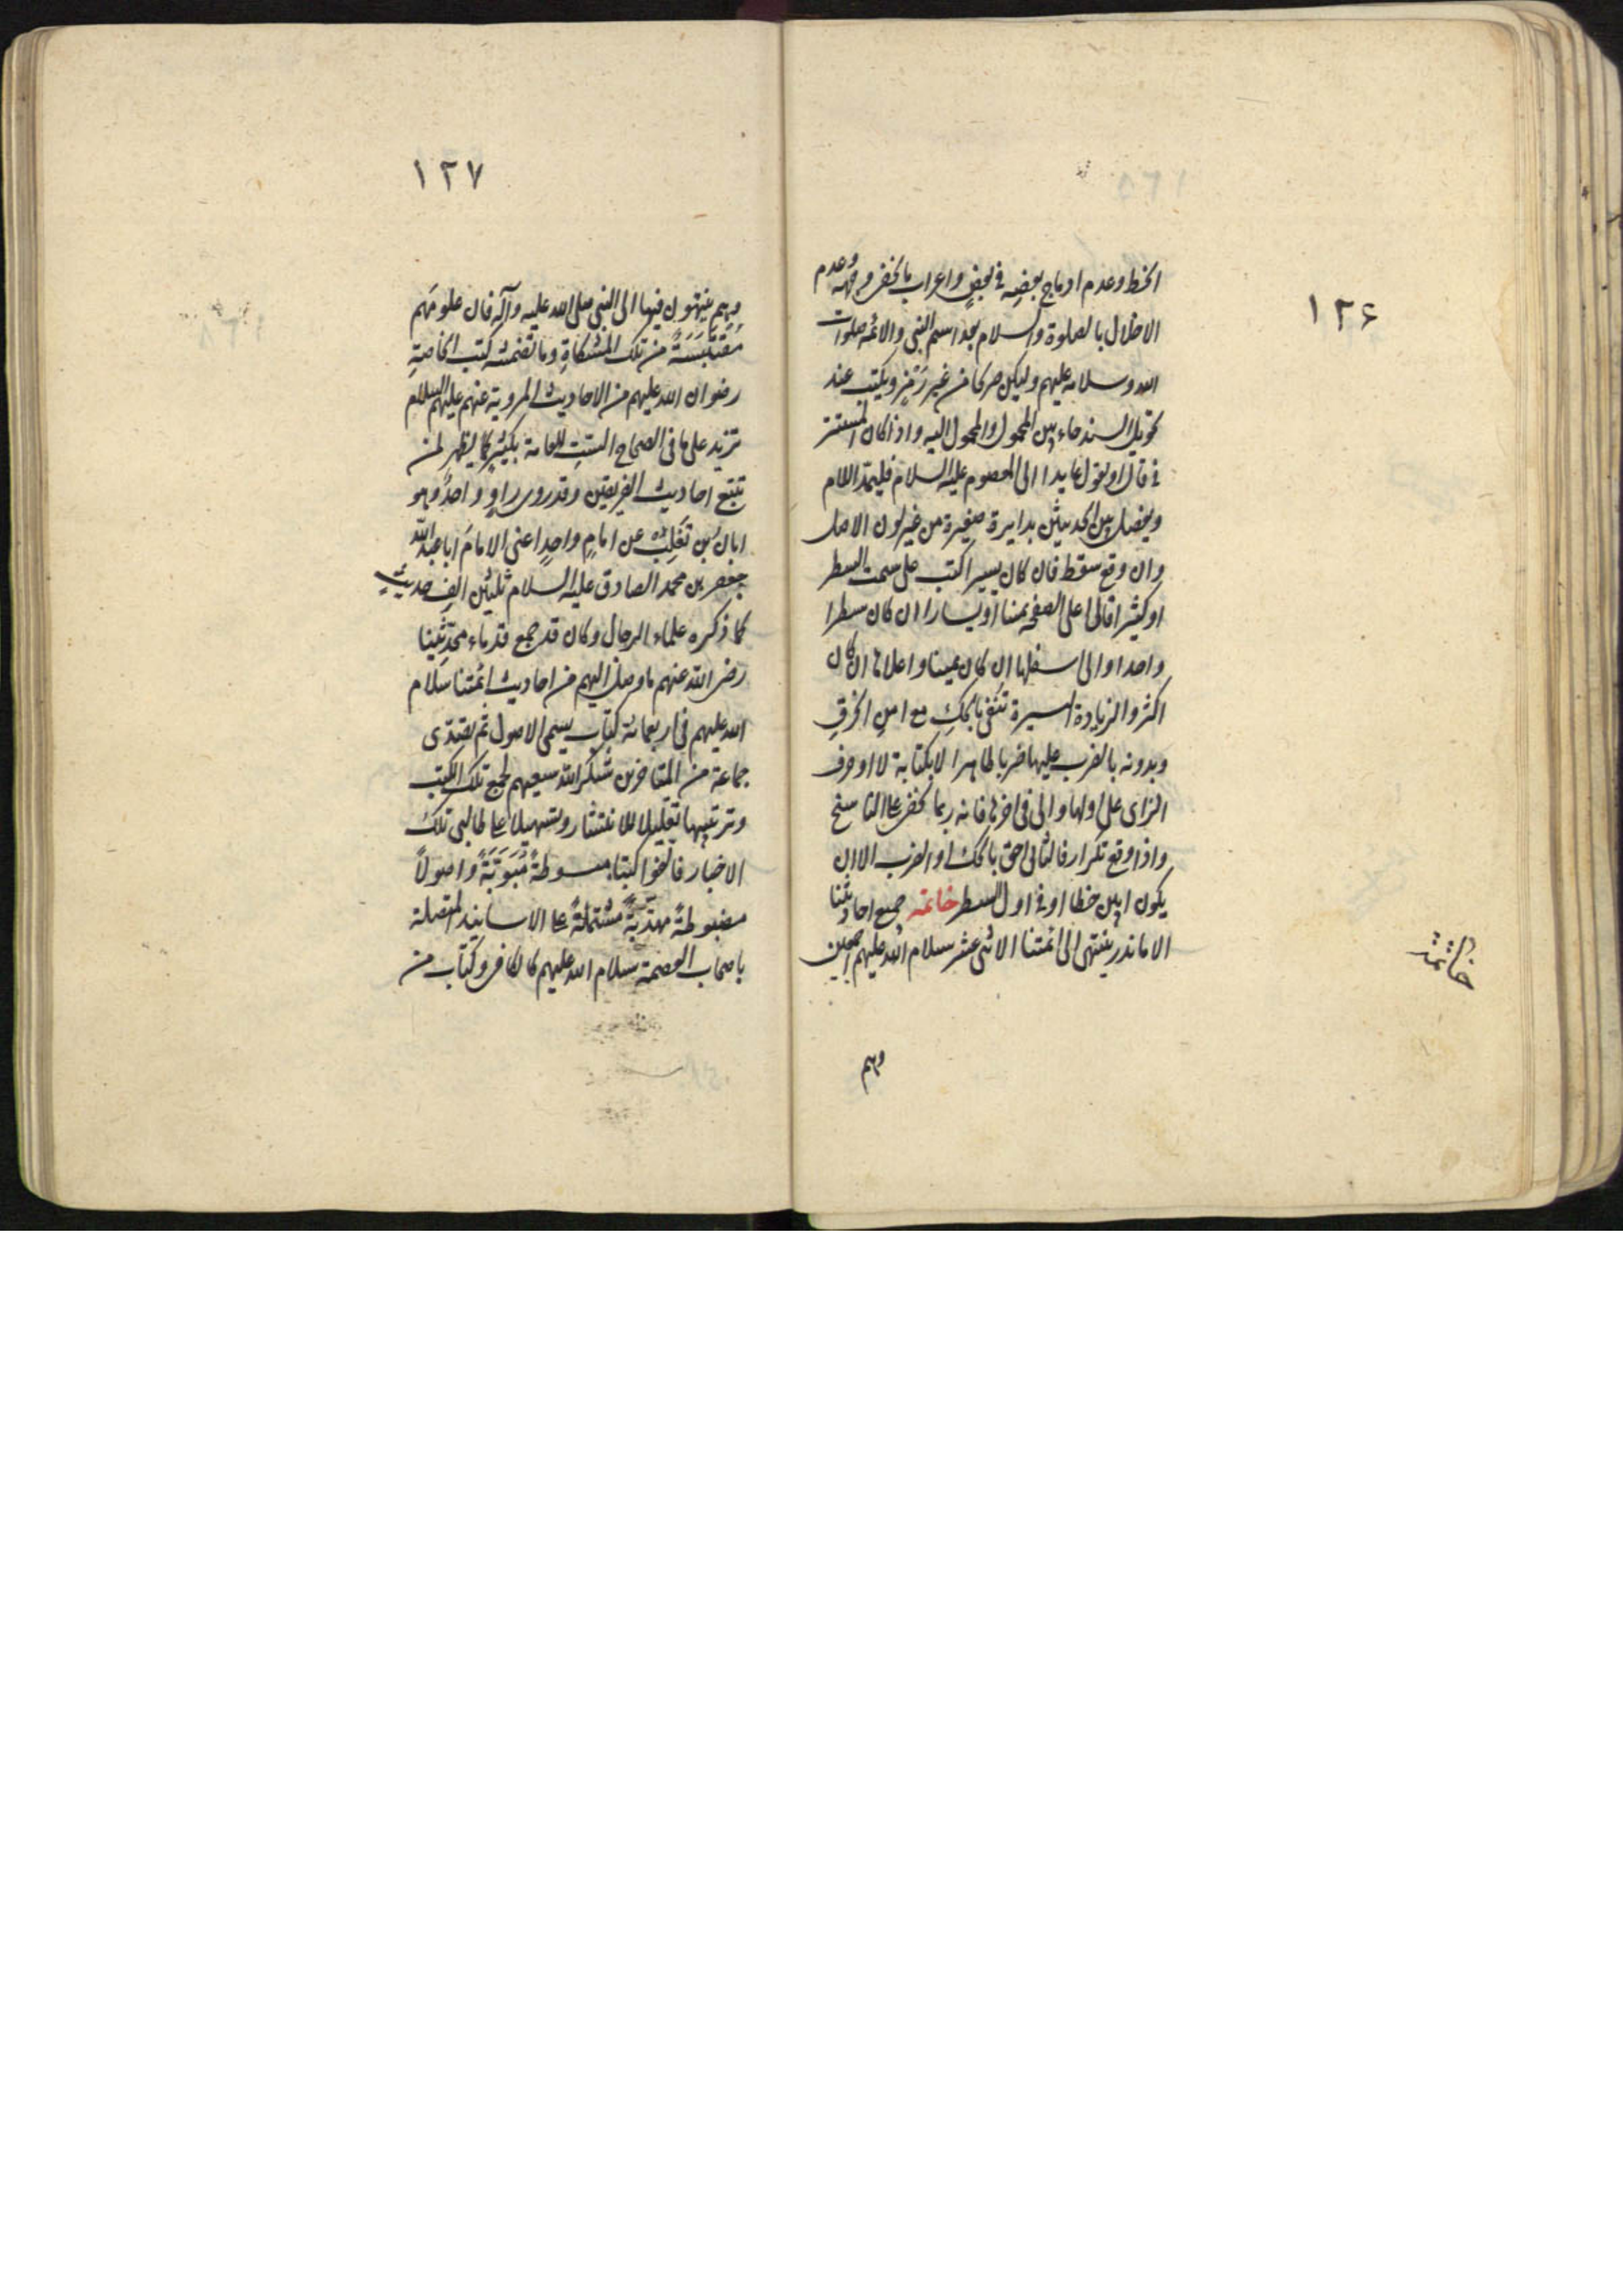 ١٢۶
الخط وعدم ادماج بعضه في بعض واعراب ما يخفى وجهه وعدم
الاخلال بالصلوة والسلام بعد اسم النبي والائمه صلوات
الله وسلامه عليهم وليكن صريحا من غير رَمْزٍ ويكتب عند
تحويل السند حاء بين المحول والمحول اليه واذا كان المستتر
في قال او يقول عايدا الى المعصوم عليه السلام فليمد اللام
ويفصل بين الحديثين بدايرة صغيرة من غير لون الاصل
وان وقع سقط فان كان يسيرا كتب على سمت السطر
او كثيرا فالى اعلى الصفحه يمينا او يسارا ان كان سطرا
واحدا والى اسفلها ان كان يمينا واعلاها ان كان
اكثر والزيادة اليسيرة تنفى بالحكِ مع امن الخرقِ
وبدونه بالضرب عليها ضربا ظاهرا لا بكتابة لا او حرف
الزاى على اولها والى في اخرها فانه ربما يخفى على الناسخ
واذا وقع تكرار فالثاني احق بالحك او الضرب الا ان
يكون ابين خطا او في اول السطر خاتمه جميع احاديثنا
الا ما ندر ينتهى الى ائمتنا الاثنى عشر سلام الله عليهم اجمعين
خاتمة
وهم
١٢٧
وهم ينتهون فيها الى النبي صلى الله عليه وآله فان علومَهم
مُقتَبَسَةٌ من تلك المشكاةِ وما تضمنته كتب الخاصةِ
رضوان الله عليهم من الاحاديث المروية عنهم عليهم السلام
تزيد على ما في الصحاح الستِ للعامة بكثيرٍ كما يظهر لمن
تتبع احاديث الفريقين وقد روى راوٍ واحدٌ وهو
ابان بن تغلِب عن امامٍ واحدٍ اعنى الامامَ ابا عبد الله
جعفر بن محمد الصادق عليه السلام ثلثين الفَ حديثٍ
كما ذكره علماء الرجال وكان قد جمع قدماء محدِّثينا
رضى الله عنهم ما وصل اليهم من احاديث ائمتنا سلام
الله عليهم في اربعمائة كتابٍ يسمى الاصول ثم تصَدّى
جماعة من المتاخرين شكر الله سعيهم لجمع تلك الكتب
وترتيبها تقليلا للانتشار وتسهيلا على طالبى تلك
الاخبار فالّفوا كتبا مبسوطةً مُبَوَّبَةً واصولاً
مضبوطةً مهذّبةً مشتملةً على الاسانيد المتصلة
باصحاب العصمة سلام الله عليهم كالكافي وكتاب من